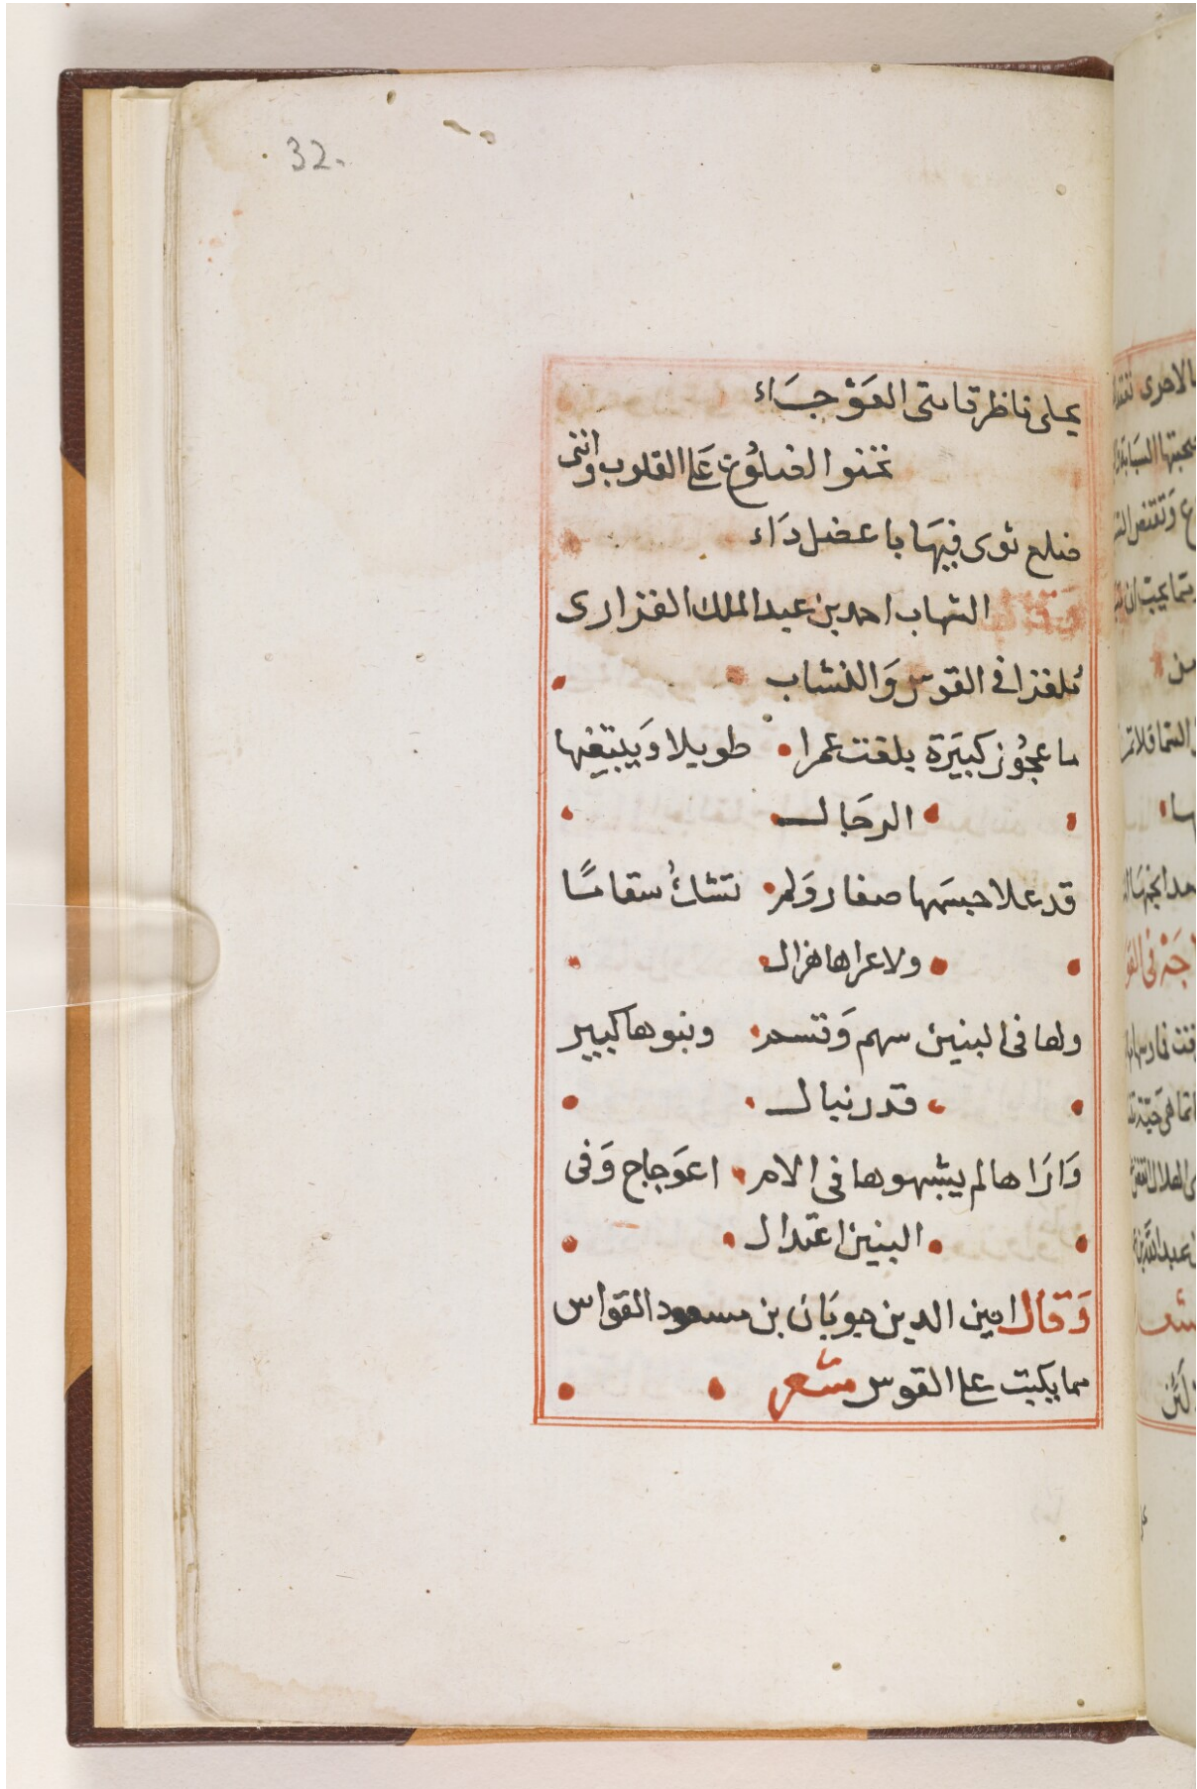 32.
يملى ناظر قامتى العَوْجَاء
تحنوا الضلُوع عَلى القلوب وانثى
ضلع ثوى فيهَا باعضل دَاء
وَقَالَ الشهاب احمد بن عبد الملك الفزارى
مُلغزا فى القوس وَالنشاب
ما عجُوز كبيَرة بلغت عمرا طويلا وَيبتغيها
الرجَال
قد علا جسَمها صفار وَلم تشكُ سقامًا
ولا عراها هزال
ولها فى البنين سهم وَقسم وبنوها كبير
قدر نبال
وَارَاها لم يشبهوها فى الام اعوَجاج وَفى
البنين اعتدال
وَقال امين الدين جوبَان بن مسعود القواس
مما يكتب على القوس شعر